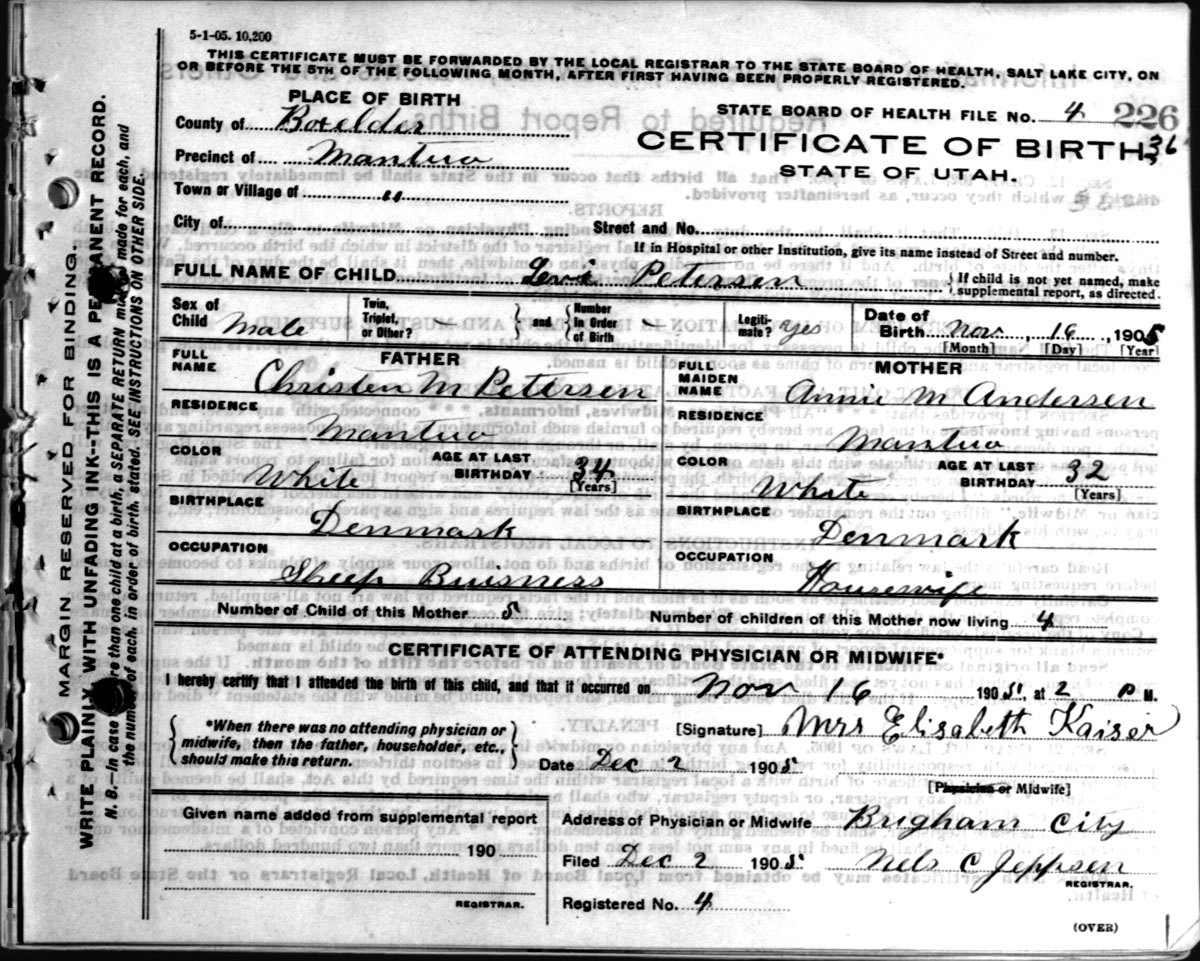 5-1-05. 10,200
THIS CERTIFICATE MUST BE FORWARDED BY THE LOCAL REGISTRAR TO THE STATE BOARD OF HEALTH, SALT LAKE CITY, ON
OR BEFORE THE 5TH OF THE FOLLOWING MONTH, AFTER FIRST HAVING BEEN PROPERLY REGISTERED.
PLACE OF BIRTH
STATE BOARD OF HEALTH FILE No. 4 226
County of Boxelder
CERTIFICATE OF BIRTH 36
Precinct of Mantua
STATE OF UTAH.
Town or Village of "
City of Street and No.
If in Hospital or other Institution, give its name instead of Street and number.
FULL NAME OF CHILD Levi Petersen { If child is not yet named, make supplemental report, as directed.
Sex of Child Male Twin, Triplet, or Other? — } and { Number in Order of Birth — Legiti-mate? Yes Date of Birth Nov, 16, 1905
[Month] [Day] [Year]
FATHER MOTHER
FULL NAME Christen M Petersen FULL MAIDEN NAME Annie M Andersen
RESIDENCE Mantua RESIDENCE Mantua
COLOR White AGE AT LAST BIRTHDAY 34 [Years] COLOR White AGE AT LAST BIRTHDAY 32 [Years]
BIRTHPLACE Denmark BIRTHPLACE Denmark
OCCUPATION Sheep Buisness OCCUPATION Housewife
Number of Child of this Mother 5 Number of children of this Mother now living 4
CERTIFICATE OF ATTENDING PHYSICIAN OR MIDWIFE*
I hereby certify that I attended the birth of this child, and that it occurred on Nov 16 1905, at 2 P M.
{ *When there was no attending physician or midwife, then the father, householder, etc., should make this return. }
[Signature] Mrs Elisabeth Kaiser
Date Dec 2 1905
[Physician or Midwife]
Given name added from supplemental report
190
REGISTRAR.
Address of Physician or Midwife Brigham City
Filed Dec 2 1905 Nels C Jeppsen
REGISTRAR.
Registered No. 4
(OVER)
MARGIN RESERVED FOR BINDING.
WRITE PLAINLY, WITH UNFADING INK--THIS IS A PERMANENT RECORD.
N. B.—In case of more than one child at a birth, a SEPARATE RETURN must be made for each, and
the number of each, in order of birth, stated. SEE INSTRUCTIONS ON OTHER SIDE.